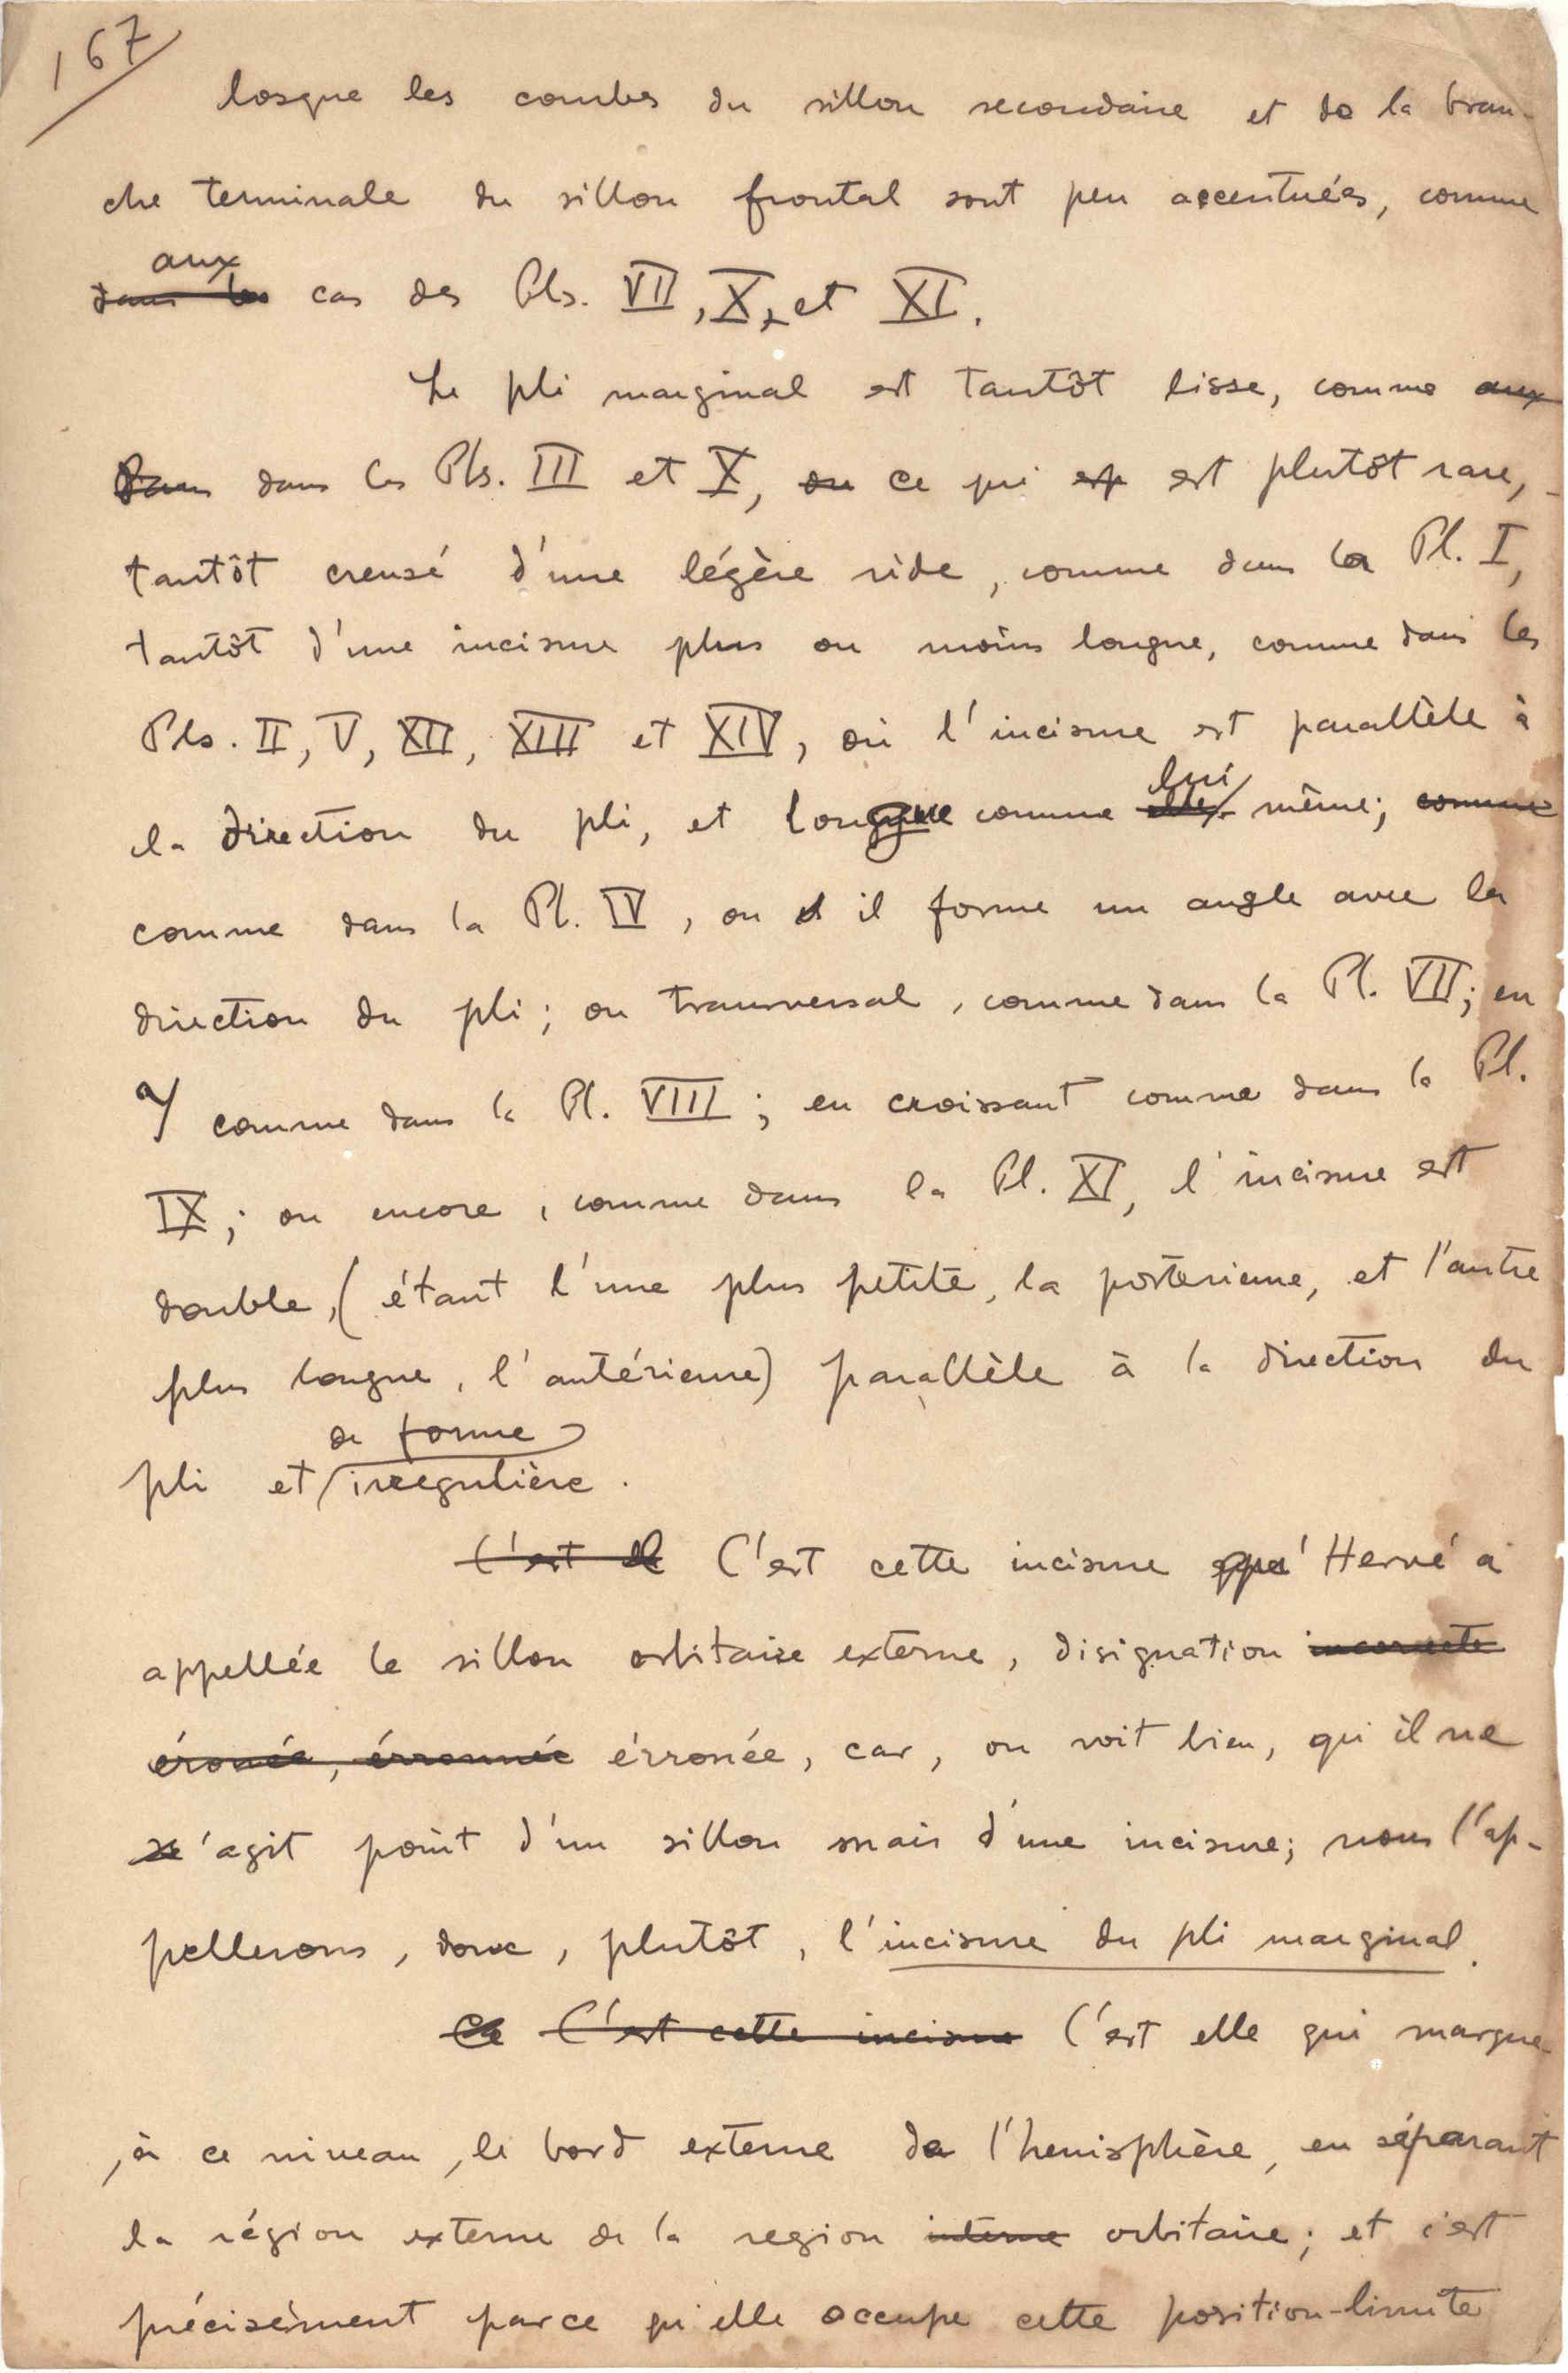 167
losque les courbes du sillon secondaire et de la bran-
che terminale du sillon frontal sont peu accentuées, comme
aux
dans les cas des Pls. VII, X, et XI.
Le pli marginal est tantôt lisse, comme aux
Dans dans les Pls. III et X, ou ce qui est plutôt rare,
tantôt creusé d'une légère ride, comme dans la Pl. I,
tantôt d'une incisure plus ou moins longue, comme dans les
Pls. II, V, XII, XIII et XIV, où l'incisure est parallèle à
la direction du pli, et longue comme
lui
elle même; comme
comme dans la Pl. IV, ou il forme un angle avec la
direction du pli; ou transversal, comme dans la Pl. VII; en
Y comme dans la Pl. VIII; en croissant comme dans la Pl.
IX; ou encore, comme dans la Pl. XI, l'incisure est
double, (étant l'une plus petite, la posterieure, et l'autre
plus longue, l'antérieure) parallèle à la direction du
de forme
pli et irregulière.
C'est C'est cette incisure que' Hervé a
appellée le sillon orbitaire externe, disignation incorrecte
éronée, érronnée érronée, car, on voit bien, qu'il ne
s'agit point d'un sillon mais d'une incisure; nous l'ap-
pellerons, donc, plutôt, l'incisure du pli marginal.
Ce C'est cette incisure C'est elle qui marque
, à ce niveau, le bord externe de l'hemisphère, en séparant
la région externe de la region interne orbitaire; et c'est
précisément parce qu'elle occupe cette position-limite